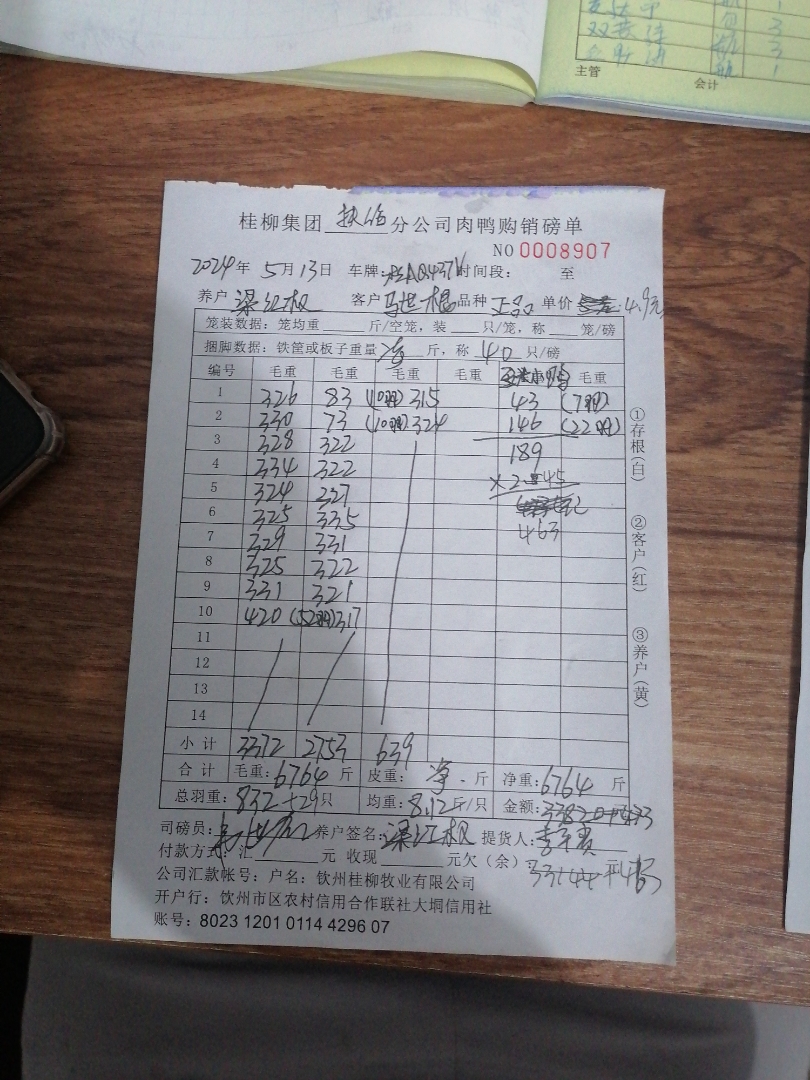 主管
会计
3
3
1
桂柳集团 分公司肉鸭购销磅单
NO 0008907
2024年 5月13日 车牌: 时间段: 至
养户 梁江权 客户 品种 正品 单价 4.9元
笼装数据: 笼均重 斤/空笼, 装 只/笼, 称 笼/磅
捆脚数据: 铁筐或板子重量 斤, 称 40 只/磅
编号 毛重 毛重 毛重 毛重 毛重
1 326 83 (10鸭) 315 43 (7鸭)
2 330 73 (10鸭) 324 146 (22鸭)
3 328 322 189
4 334 322 ×2.45
5 324 327
6 325 335 463
7 329 331
8 325 322
9 331 321
10 420 (52鸭) 317
11
12
13
14
小计 3372 2753 639
合计 毛重: 6764 斤 皮重: 净 斤 净重: 6764 斤
总羽重: 832+29只 均重: 8.12斤/只 金额:
司磅员: 养户签名: 梁江权 提货人:
付款方式: 汇 元 收现 元欠(余)
公司汇款帐号: 户名: 钦州桂柳牧业有限公司
开户行: 钦州市区农村信用合作联社大垌信用社
账号: 8023 1201 0114 4296 07
①存根(白)
②客户(红)
③养户(黄)